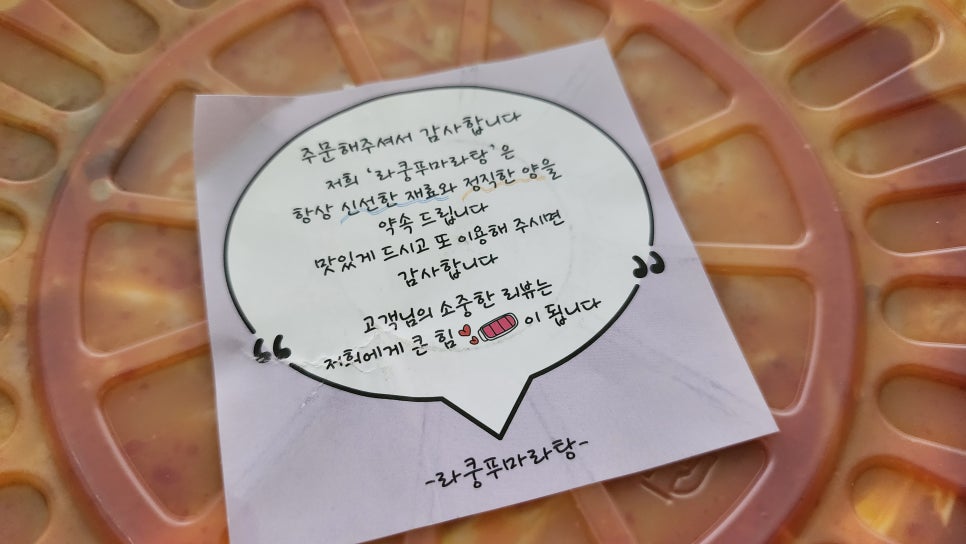 주문해주셔서 감사합니다
저희 '라쿵푸마라탕'은
항상 신선한 재료와 정직한 양을
약속 드립니다
맛있게 드시고 또 이용해 주시면
감사합니다
고객님의 소중한 리뷰는
저희에게 큰 힘이 됩니다
-라쿵푸마라탕-